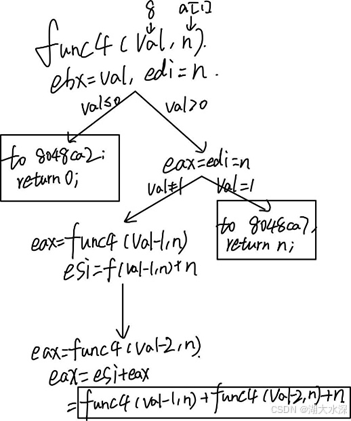 8 a[i]
func4(val,n).
ebx=val, edi=n.
val≤0 val>0
to 8048ca2;
return 0;
eax=edi=n
val≠1 val=1
to 8048ca7,
return n;
eax=func4(val-1,n)
esi=f(val-1,n)+n
eax=func4(val-2,n)
eax=esi+eax
=func4(val-1,n)+func4(val-2,n)+n
CSDN @湖大水深